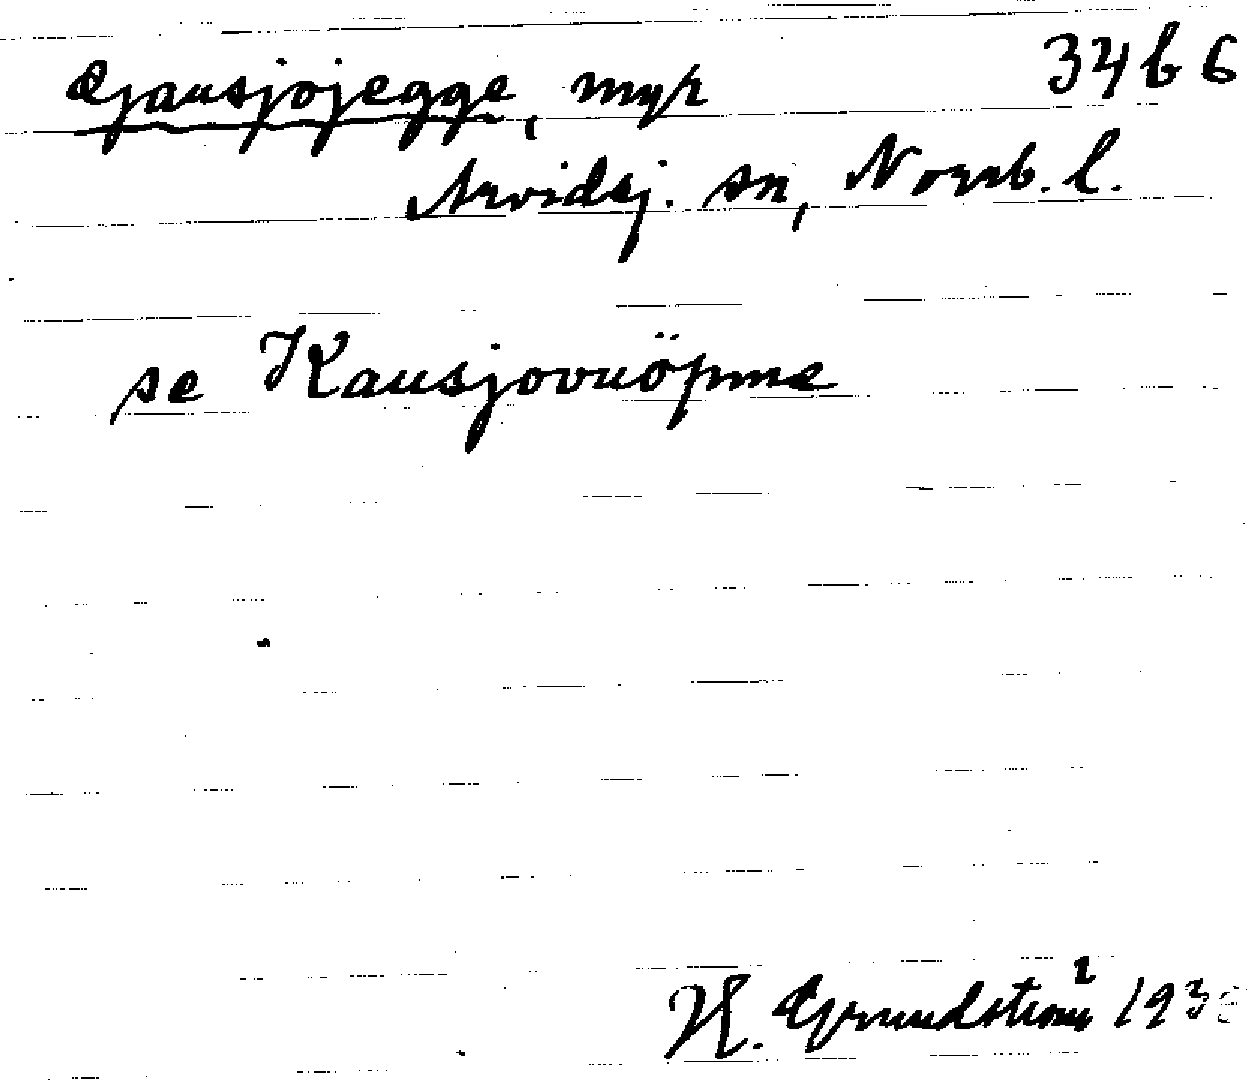 Gausjojegge, myr 34b6
Arvidsj. sn, Norrb. l.
se Kausjovuöpme
H. Grundström